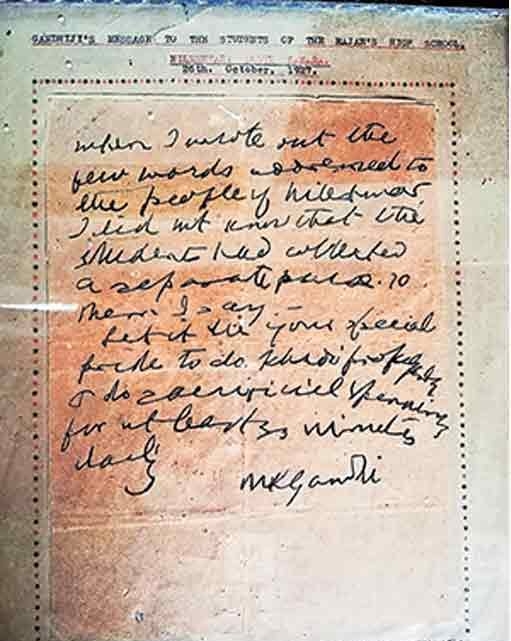 GANDHIJI'S MESSAGE TO THE STUDENTS OF THE RAJAH'S HIGH SCHOOL,
26th. October, 1927.
when I wrote out the
few words addressed to
the people of Nileshwar,
I did not know that the
students had collected
a separate purse. To
them I say —
Let it be your special
pride to do khadi
& do sacrificial spinning
for at least 30 minutes
daily
MKGandhi